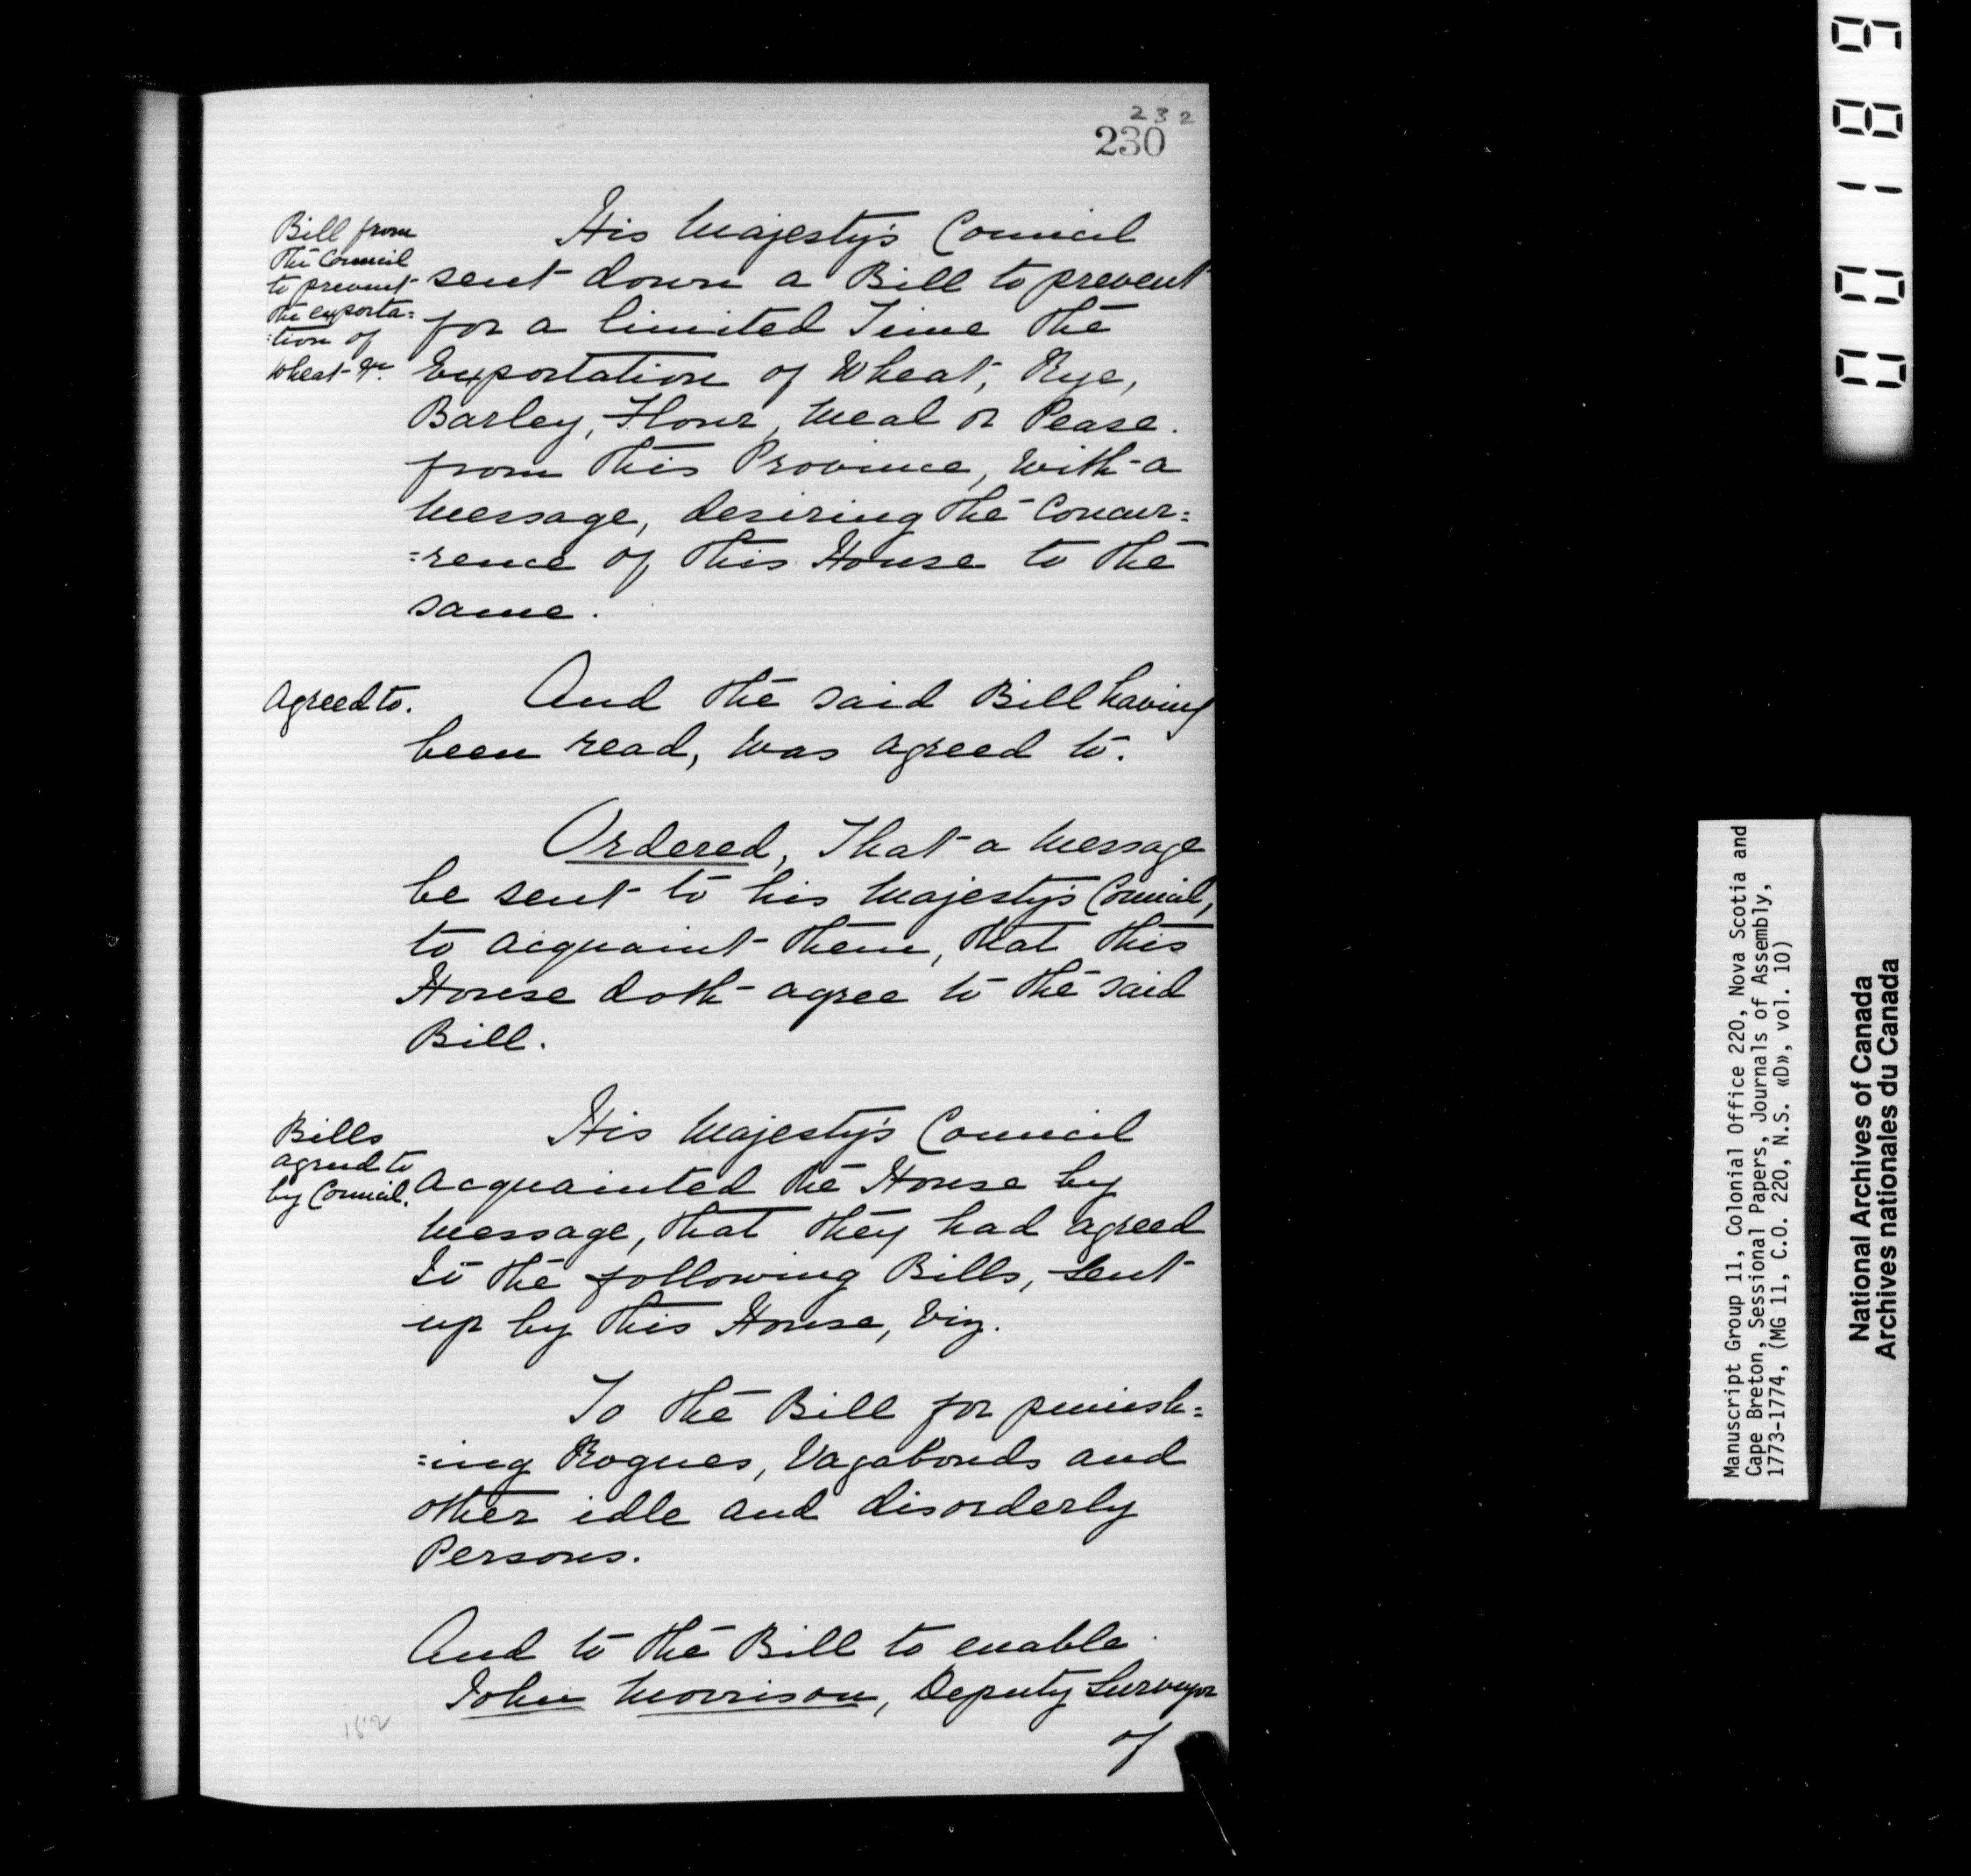 232
230
Bill from
the Council
to prevent
the exporta=
=tion of
Wheat &c.
His Majesty's Council
sent down a Bill to prevent
for a limited Time the
Exportation of Wheat, Rye,
Barley, Flour, Meal or Pease.
from this Province, with a
Message, desiring the Concur=
=rence of this House to the
same.
Agreed to.
And the said Bill having
been read, was agreed to.
Ordered, That a Message
be sent to his Majesty's Council,
to acquaint them, that this
House doth agree to the said
Bill.
Bills
agreed to
by Council.
His Majesty's Council
acquainted the House by
Message, that they had agreed
To the following Bills, sent
up by this House, Viz.
To the Bill for punish=
=ing Rogues, Vagabonds and
other idle and disorderly
Persons.
And to the Bill to enable
John Morrison, Deputy Surveyor
of
152
00189
Manuscript Group 11, Colonial Office 220, Nova Scotia and
Cape Breton, Sessional Papers, Journals of Assembly,
1773-1774, (MG 11, C.O. 220, N.S. «D», vol. 10)
National Archives of Canada
Archives nationales du Canada